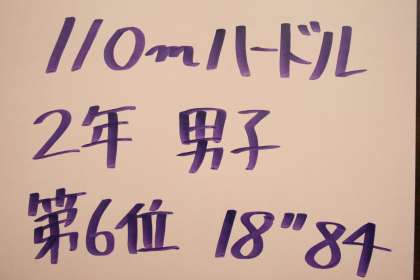 110mハードル
2年 男子
第6位 18"84